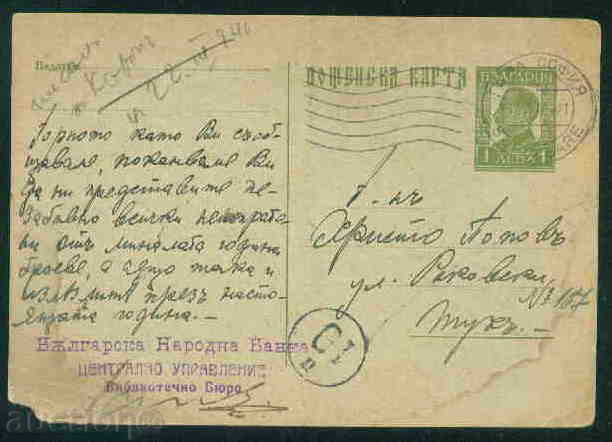 22. IV. 941
ПОЩЕНСКА КАРТА
БЪЛГАРИЯ
1 ЛЕВЪ 1
СОФИЯ
Горното като Ви съоб-
щаваме, поканваме Ви
да ни представите не-
забавно всички
отъ миналата година
броеве, а също така и
презъ насто-
ящата година. —
Българска Народна Банка
ЦЕНТРАЛНО УПРАВЛЕНИЕ
Библиотечно Бюро
Г-нъ
Христо Поповъ
ул. Раковски
№ 157
Тукъ. —